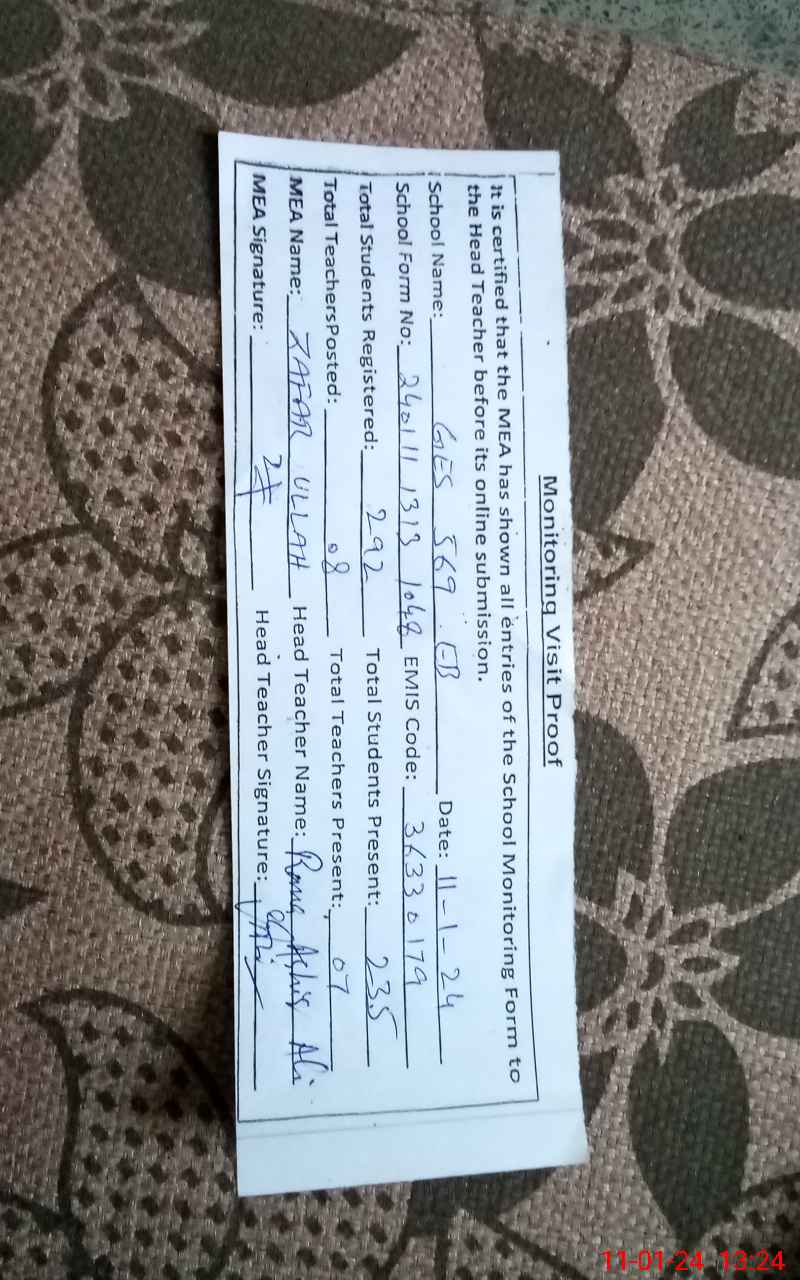 Monitoring Visit Proof
It is certified that the MEA has shown all entries of the School Monitoring Form to
the Head Teacher before its online submission.
School Name: GES 569 EB Date: 11-1-24
School Form No: 240111 1313 1048 EMIS Code: 36330179
Total Students Registered: 292 Total Students Present: 235
Total TeachersPosted: 08 Total Teachers Present: 07
MEA Name: ZAFAR ULLAH Head Teacher Name: Rana Ali
MEA Signature: Head Teacher Signature:
11-01-24 13:24